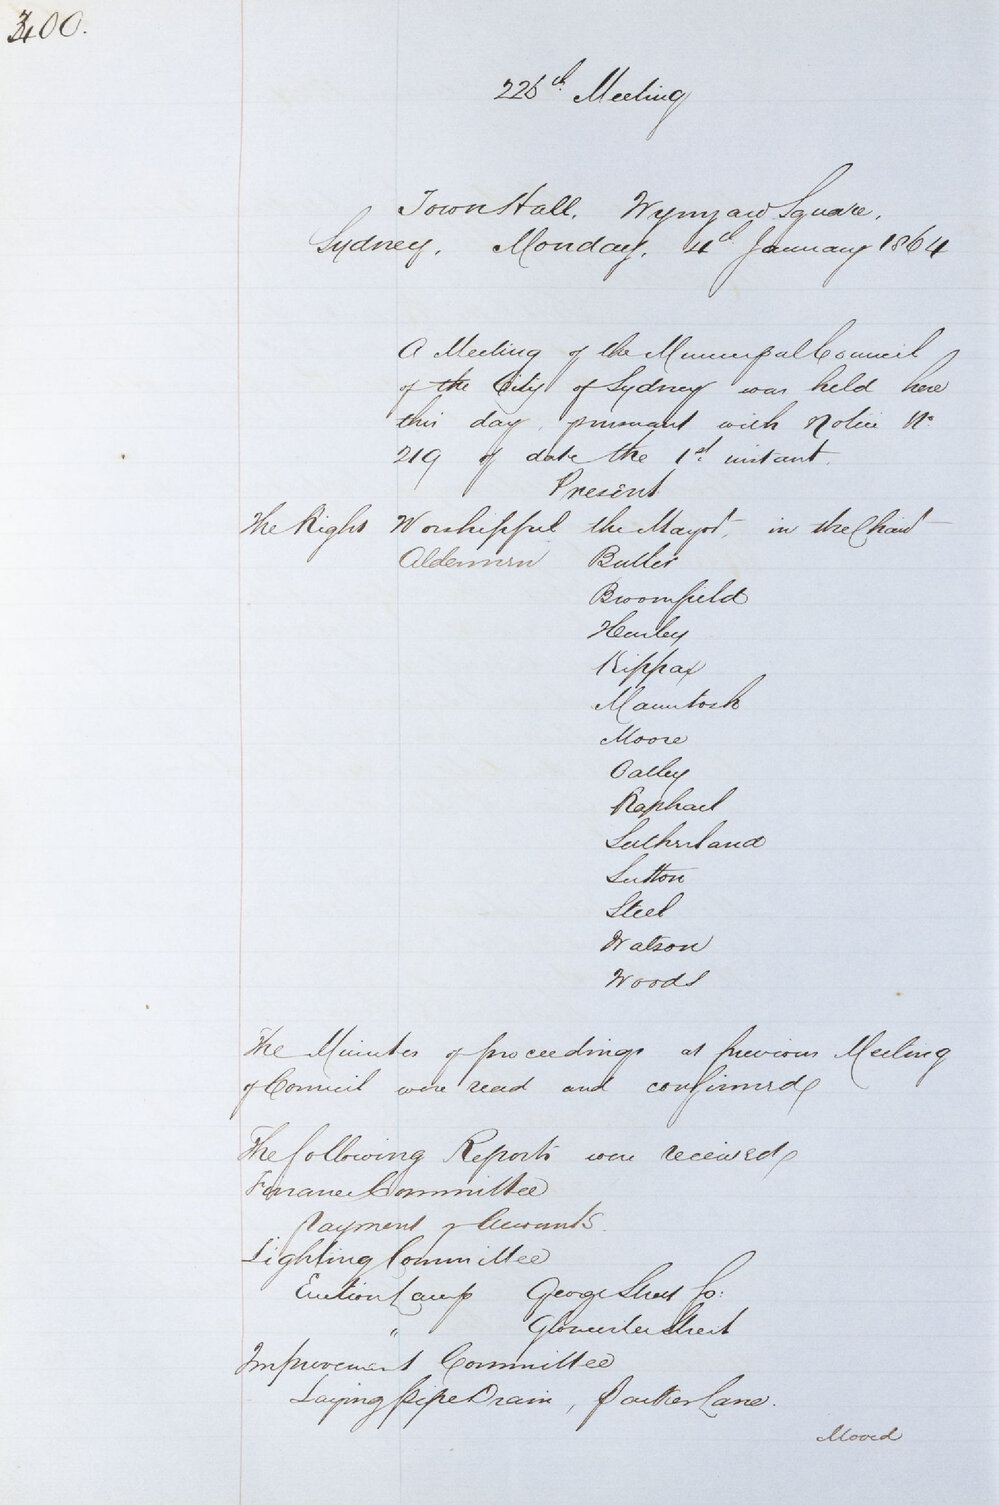 400.
225th Meeting
Town Hall. Wynyard Square.
Sydney. Monday. 4th January 1864
A Meeting of the Municipal Council
of the City of Sydney was held here
this day, pursuant with Notice No.
219 of date the 1st instant.
Present
The Right Worshipful the Mayor, in the Chair
Aldermen Butler
Broomfield
Hurley
Kippax
Macintosh
Moore
Oatley
Raphael
Sutherland
Sutton
Steel
Watson
Woods
The Minutes of proceedings at previous Meeting
of Council were read and confirmed
The following Reports were received
Finance Committee
Payment of Accounts.
Lighting Committee
Erection Lamp George Street So:
" Gloucester Street
Improvement Committee
Laying Pipe Drain, Lane.
Moved